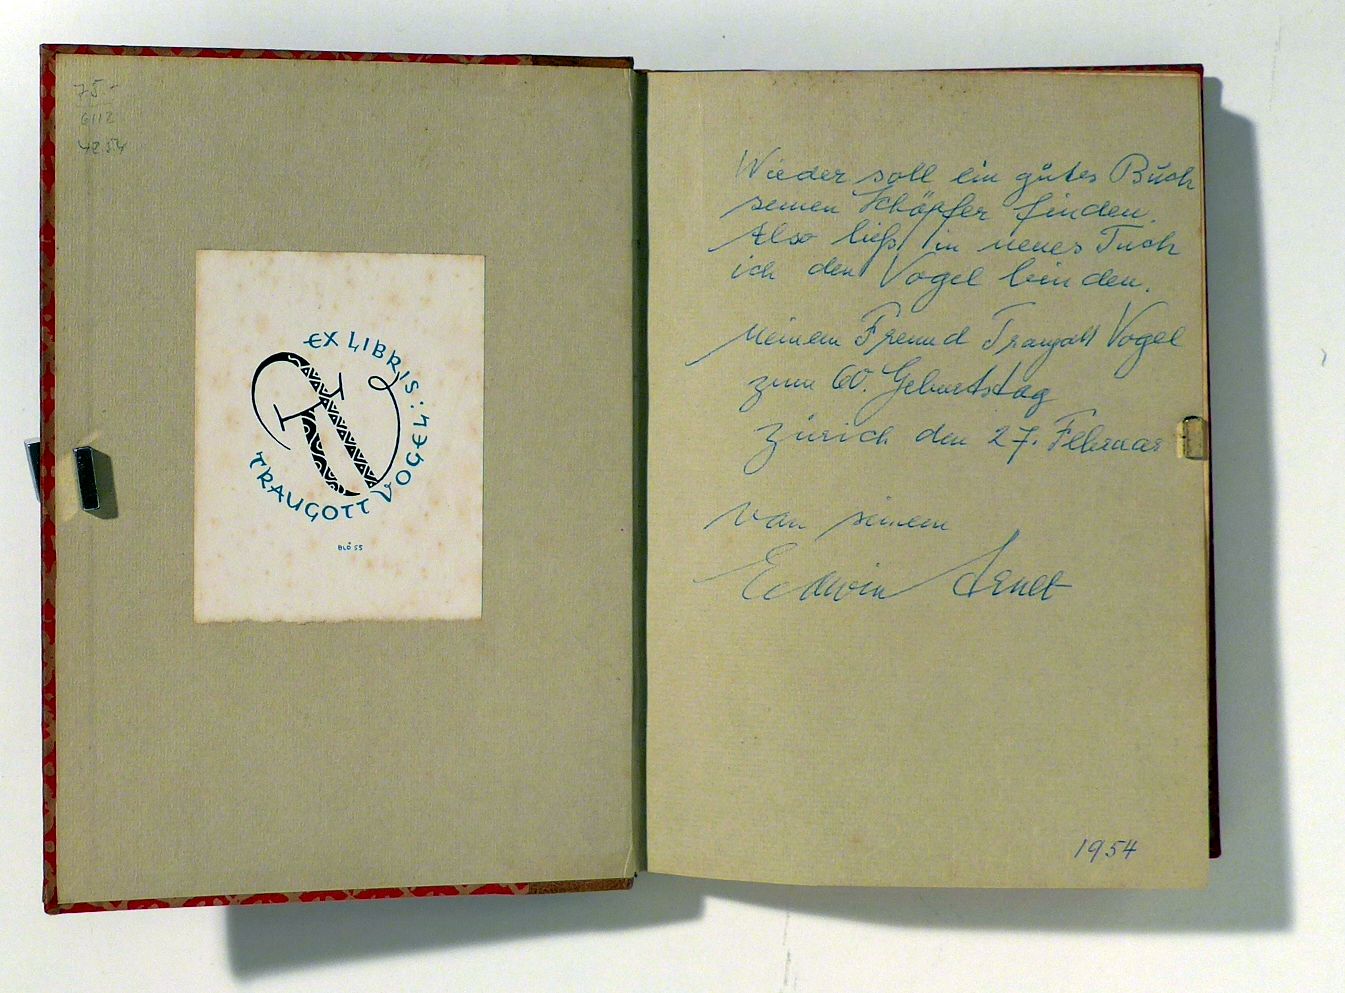 75.-
6112
EX LIBRIS:
TRAUGOTT VOGEL
BLÖ 55
Wieder soll ein gutes Buch
seinen Schöpfer finden.
Also ließ in neues Tuch
ich den Vogel binden.
Meinem Freund Traugott Vogel
zum 60. Geburtstag
Zürich den 27. Februar
von seinem
Edwin Arnet
1954